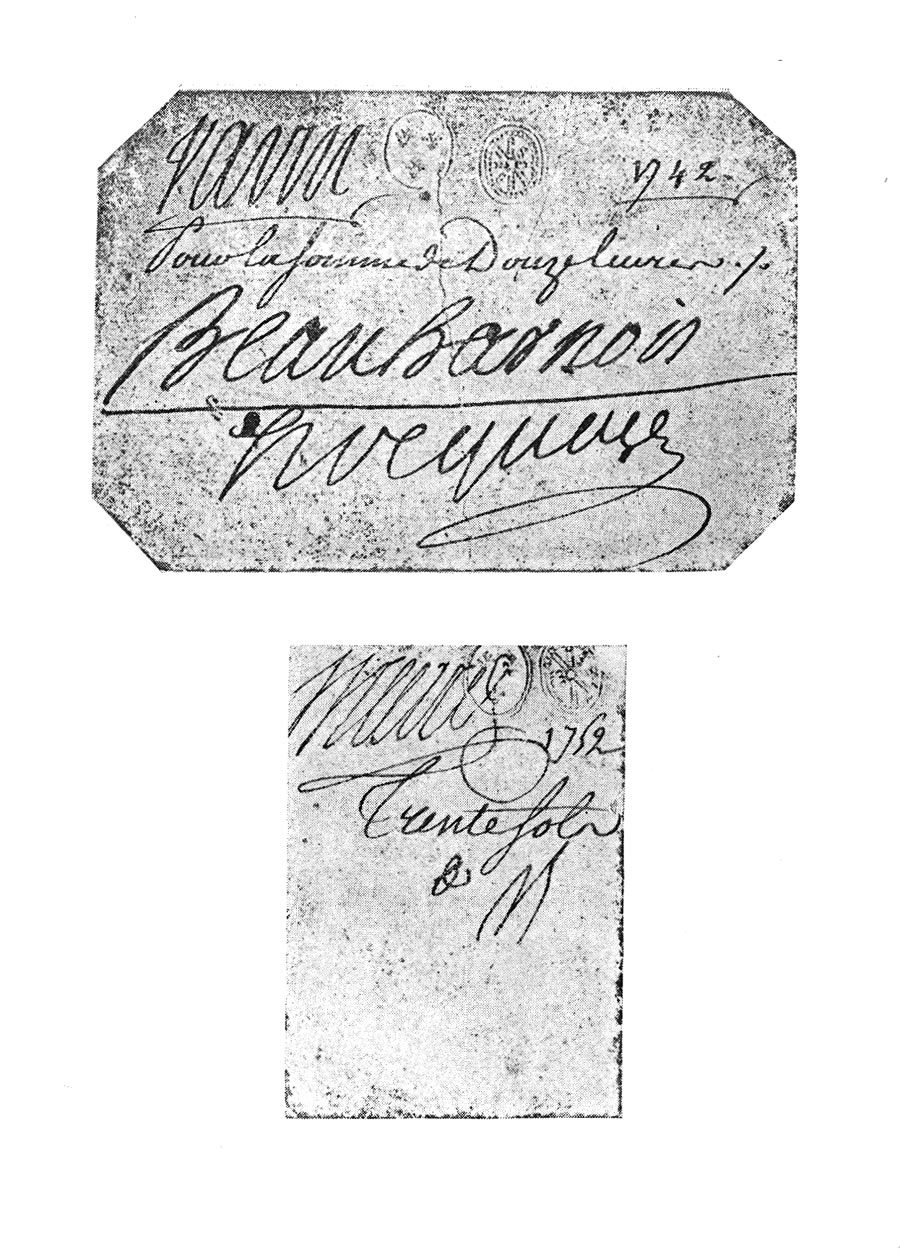 varin 1742
Pour la somme de Douze livres ./.
Beauharnois
hocquart
varin
1752
Trente Sols